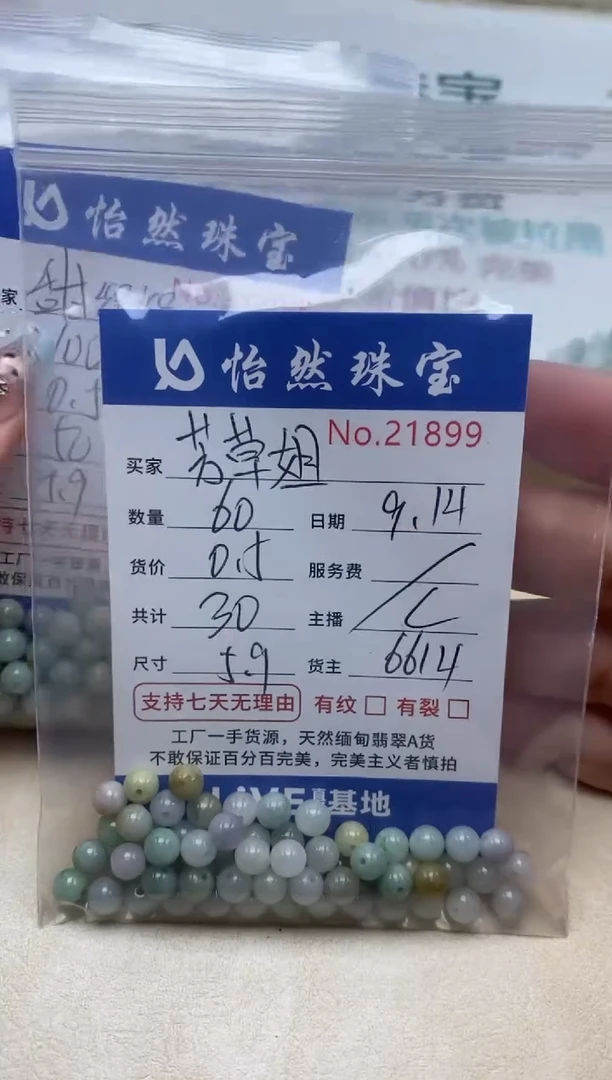 怡然珠宝
No.21899
买家 芳草姐
数量 60 日期 9.14
货价 0.5 服务费 /
共计 30 主播 L
尺寸 5.9 货主 6614
支持七天无理由 有纹 □ 有裂 □
工厂一手货源，天然缅甸翡翠A货
不敢保证百分百完美，完美主义者慎拍
LIVE 基地
怡然珠宝
家
100
0.5
50
5.9
宝